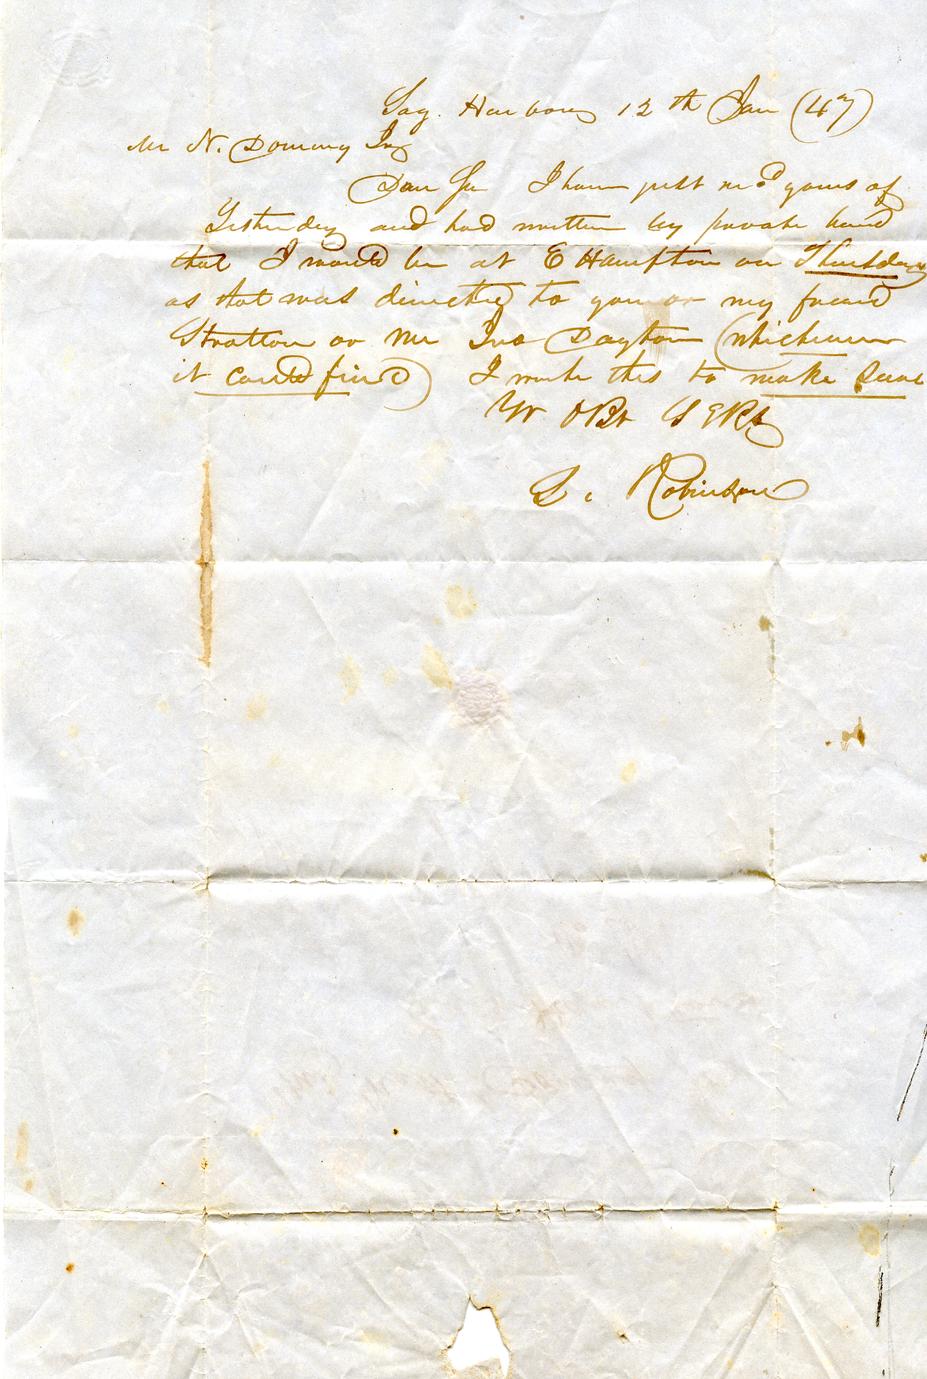 Sag. Harbour 12th Jan (47)
Mr N. Dominy Jnr
Dear Sir I have just rec.d yours of
Yesterday and had written by private hand
that I would be at E Hampton on Thursday
as that was directed to you or my friend
Stratton or Mr Jno Dayton (whichever
it could find) I write this to make sure
Yr OBt SERt
S. Robinson